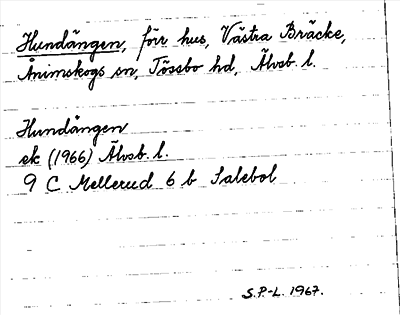 Hundängen, förr hus, Västra Bräcke,
Ånimskogs sn, Tössbo hd, Älvsb. l.
Hundängen
ek (1966) Älvsb. l.
9 C Mellerud 6 b Salebol
S.P.-L. 1967.